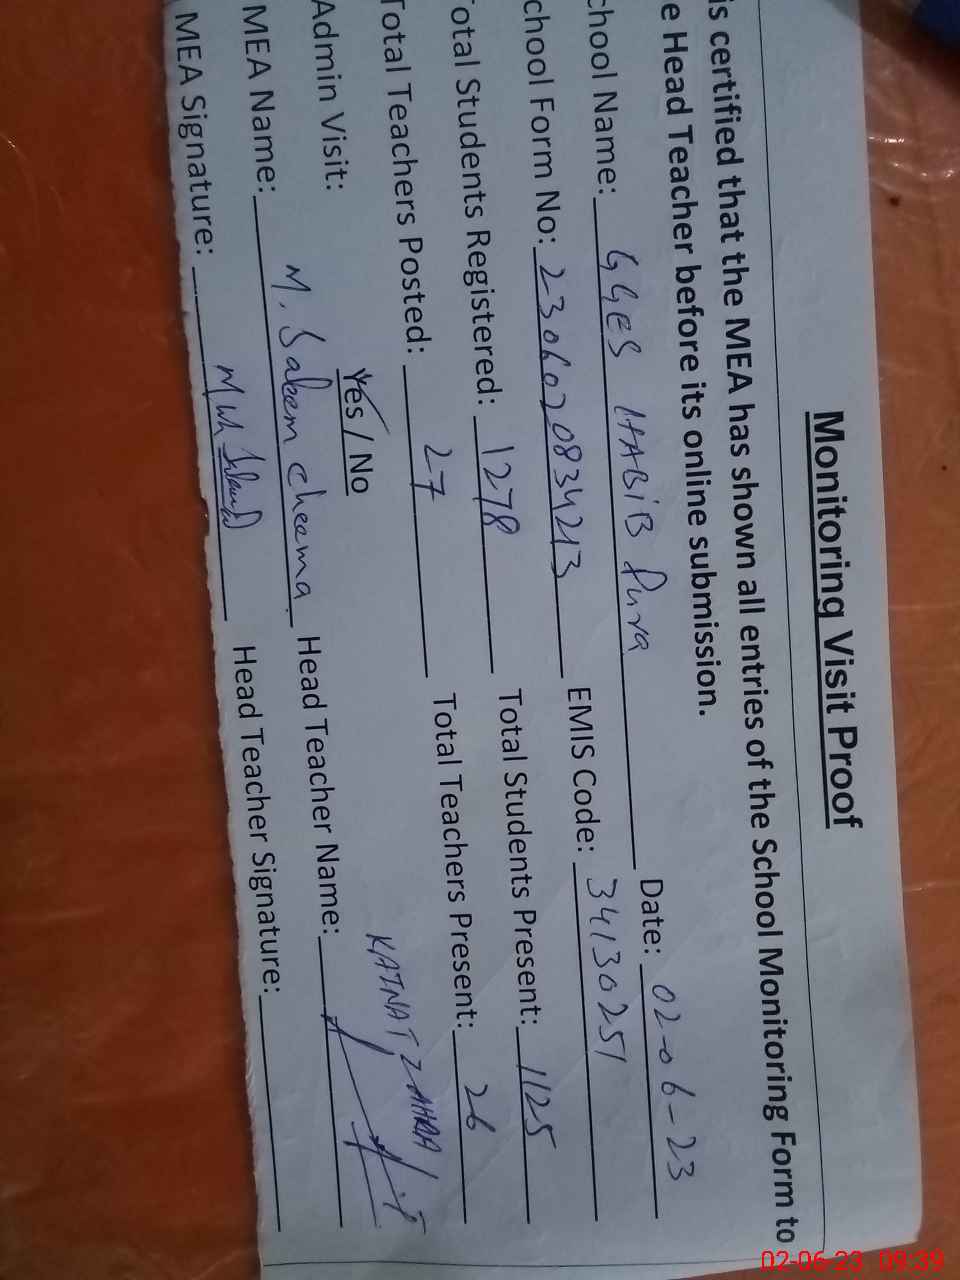 Monitoring Visit Proof
is certified that the MEA has shown all entries of the School Monitoring Form to
e Head Teacher before its online submission.
chool Name: GGES HABIB Pura Date: 02-06-23
chool Form No: 2306020834213 EMIS Code: 34130251
otal Students Registered: 1278 Total Students Present: 1125
Total Teachers Posted: 27 Total Teachers Present: 26
Admin Visit: Yes / No KAINAT ZAHRA
MEA Name: M. Saleem cheema Head Teacher Name:
MEA Signature: Head Teacher Signature:
02-06-23 09:39